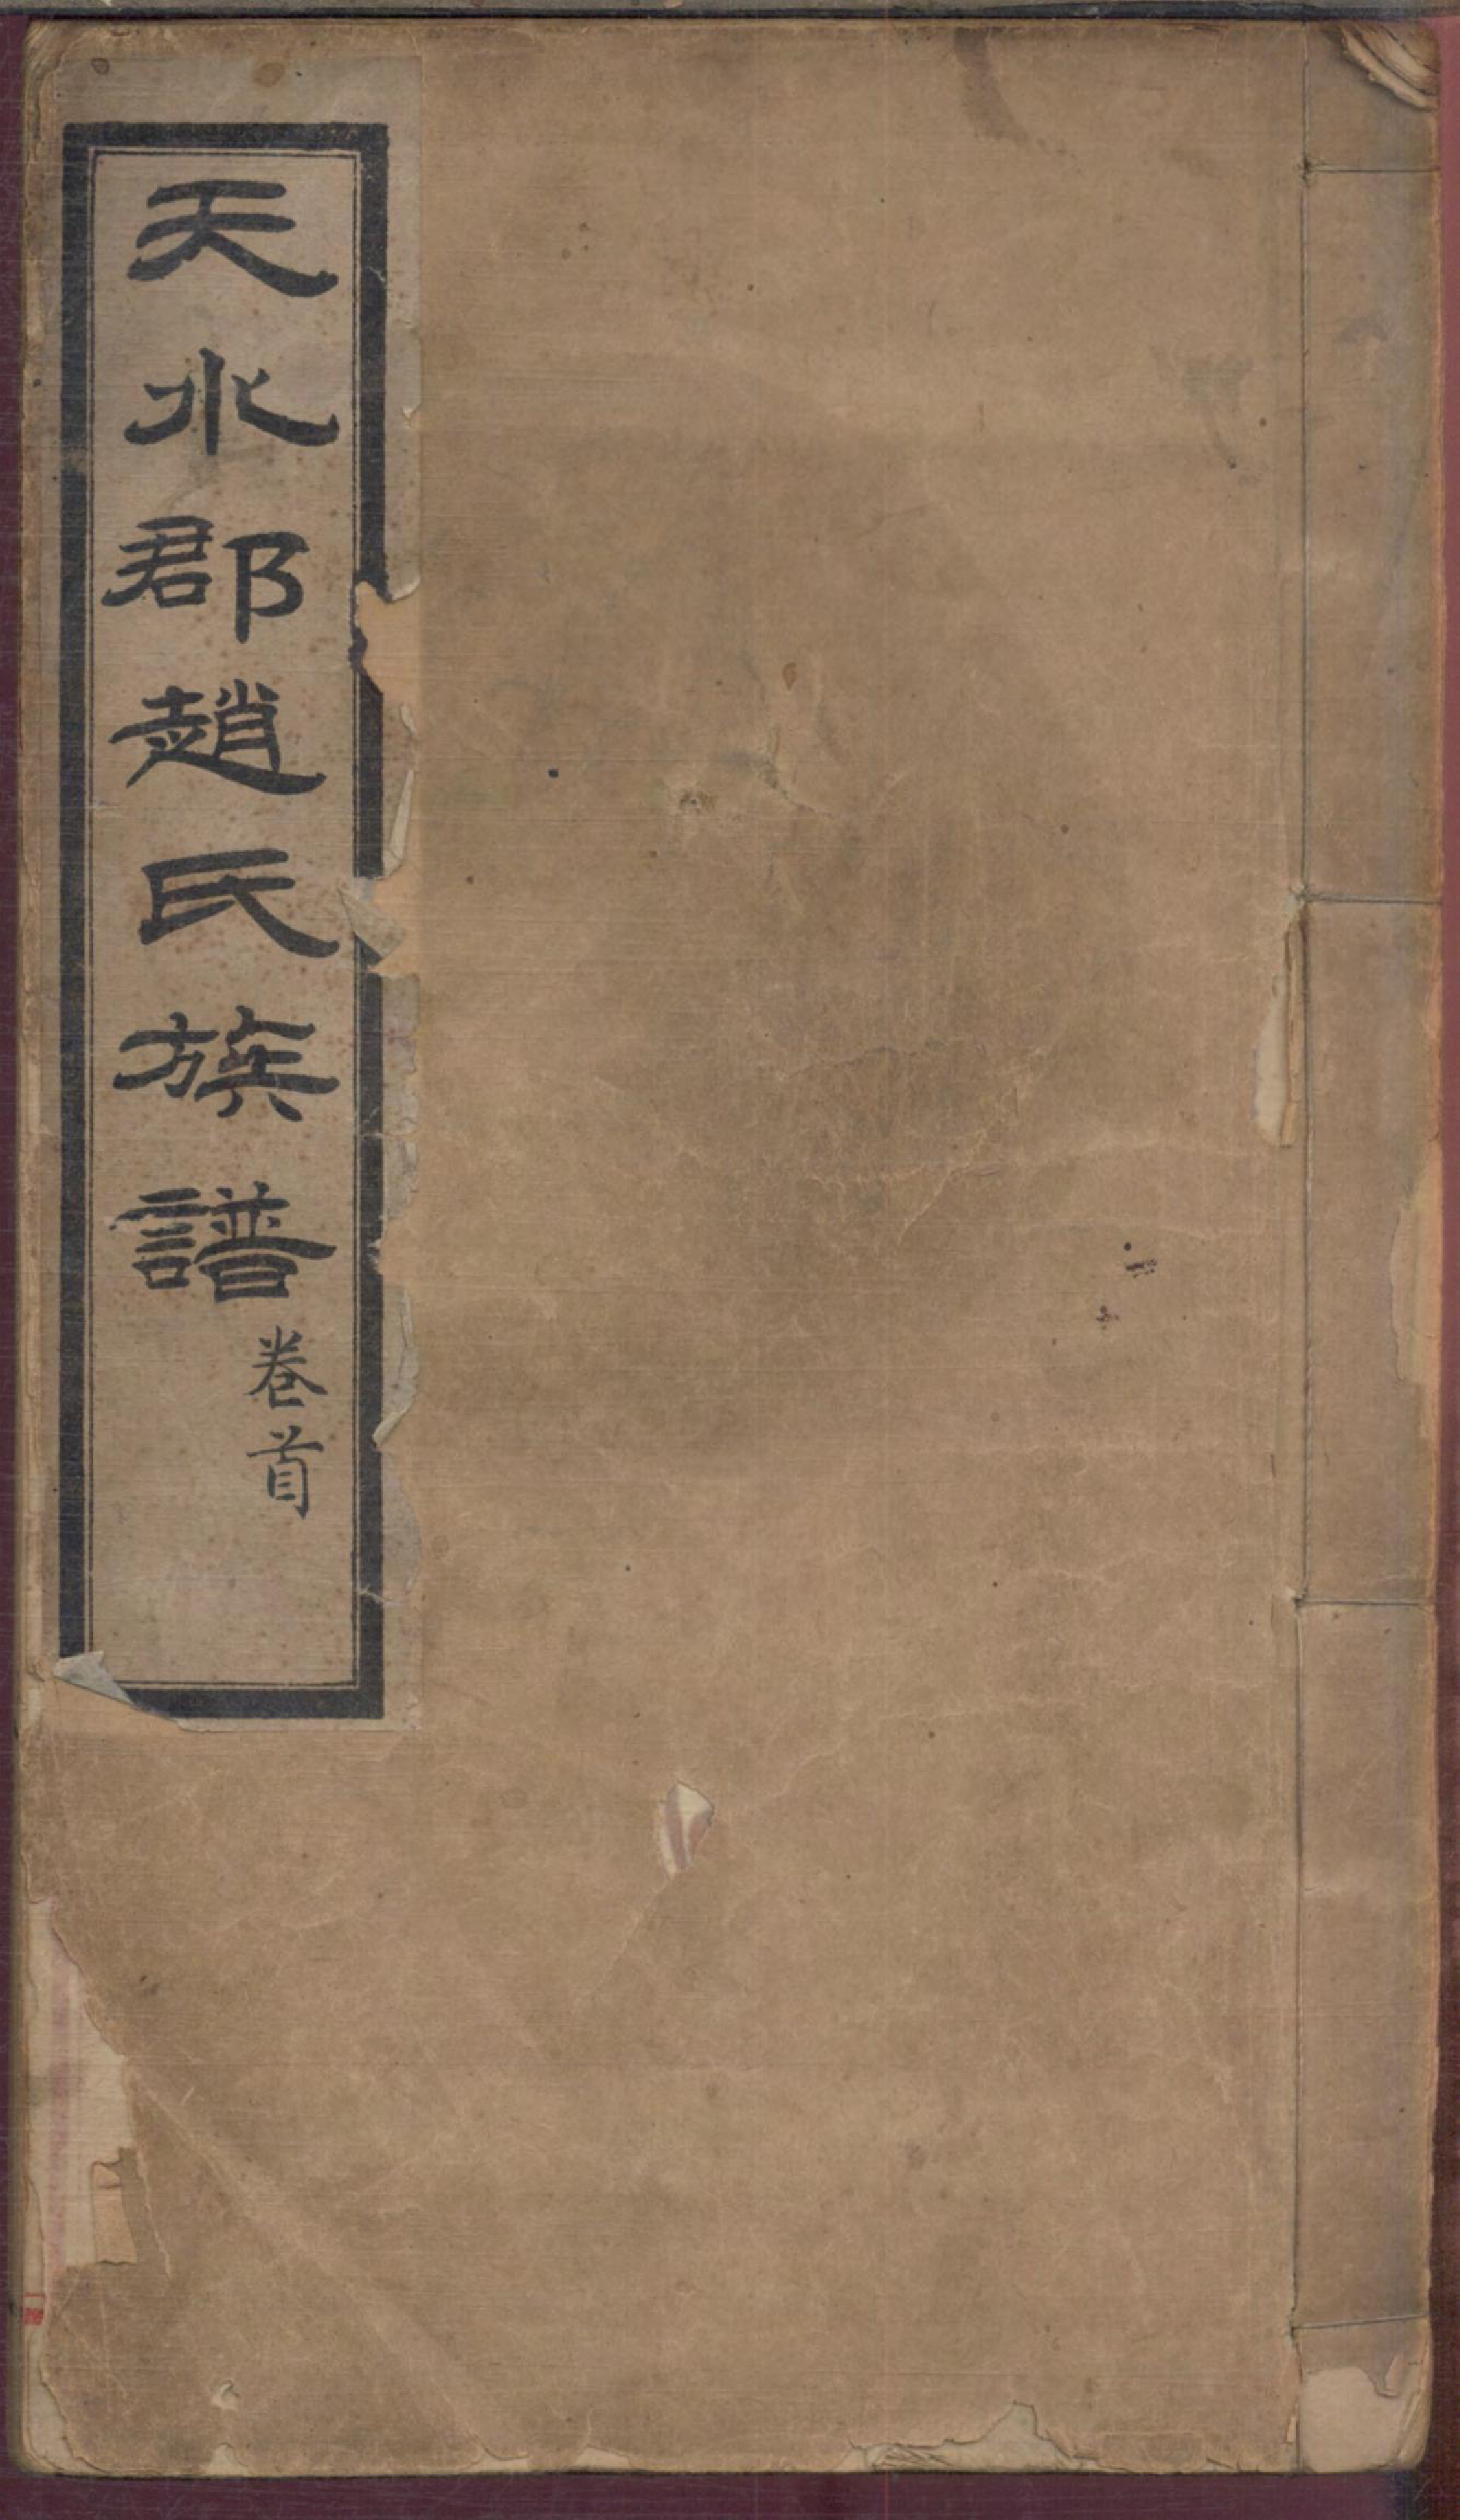 天水郡趙氏族譜
卷首